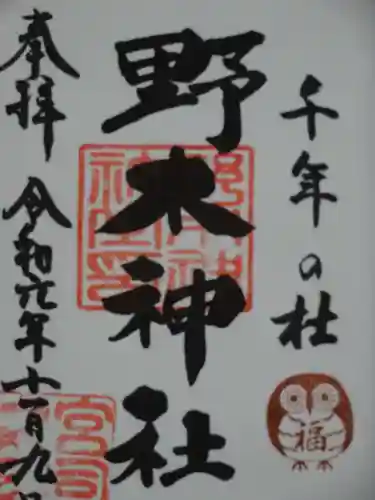 千年の杜
福
野木神社
奉拝
令和六年十一月九日